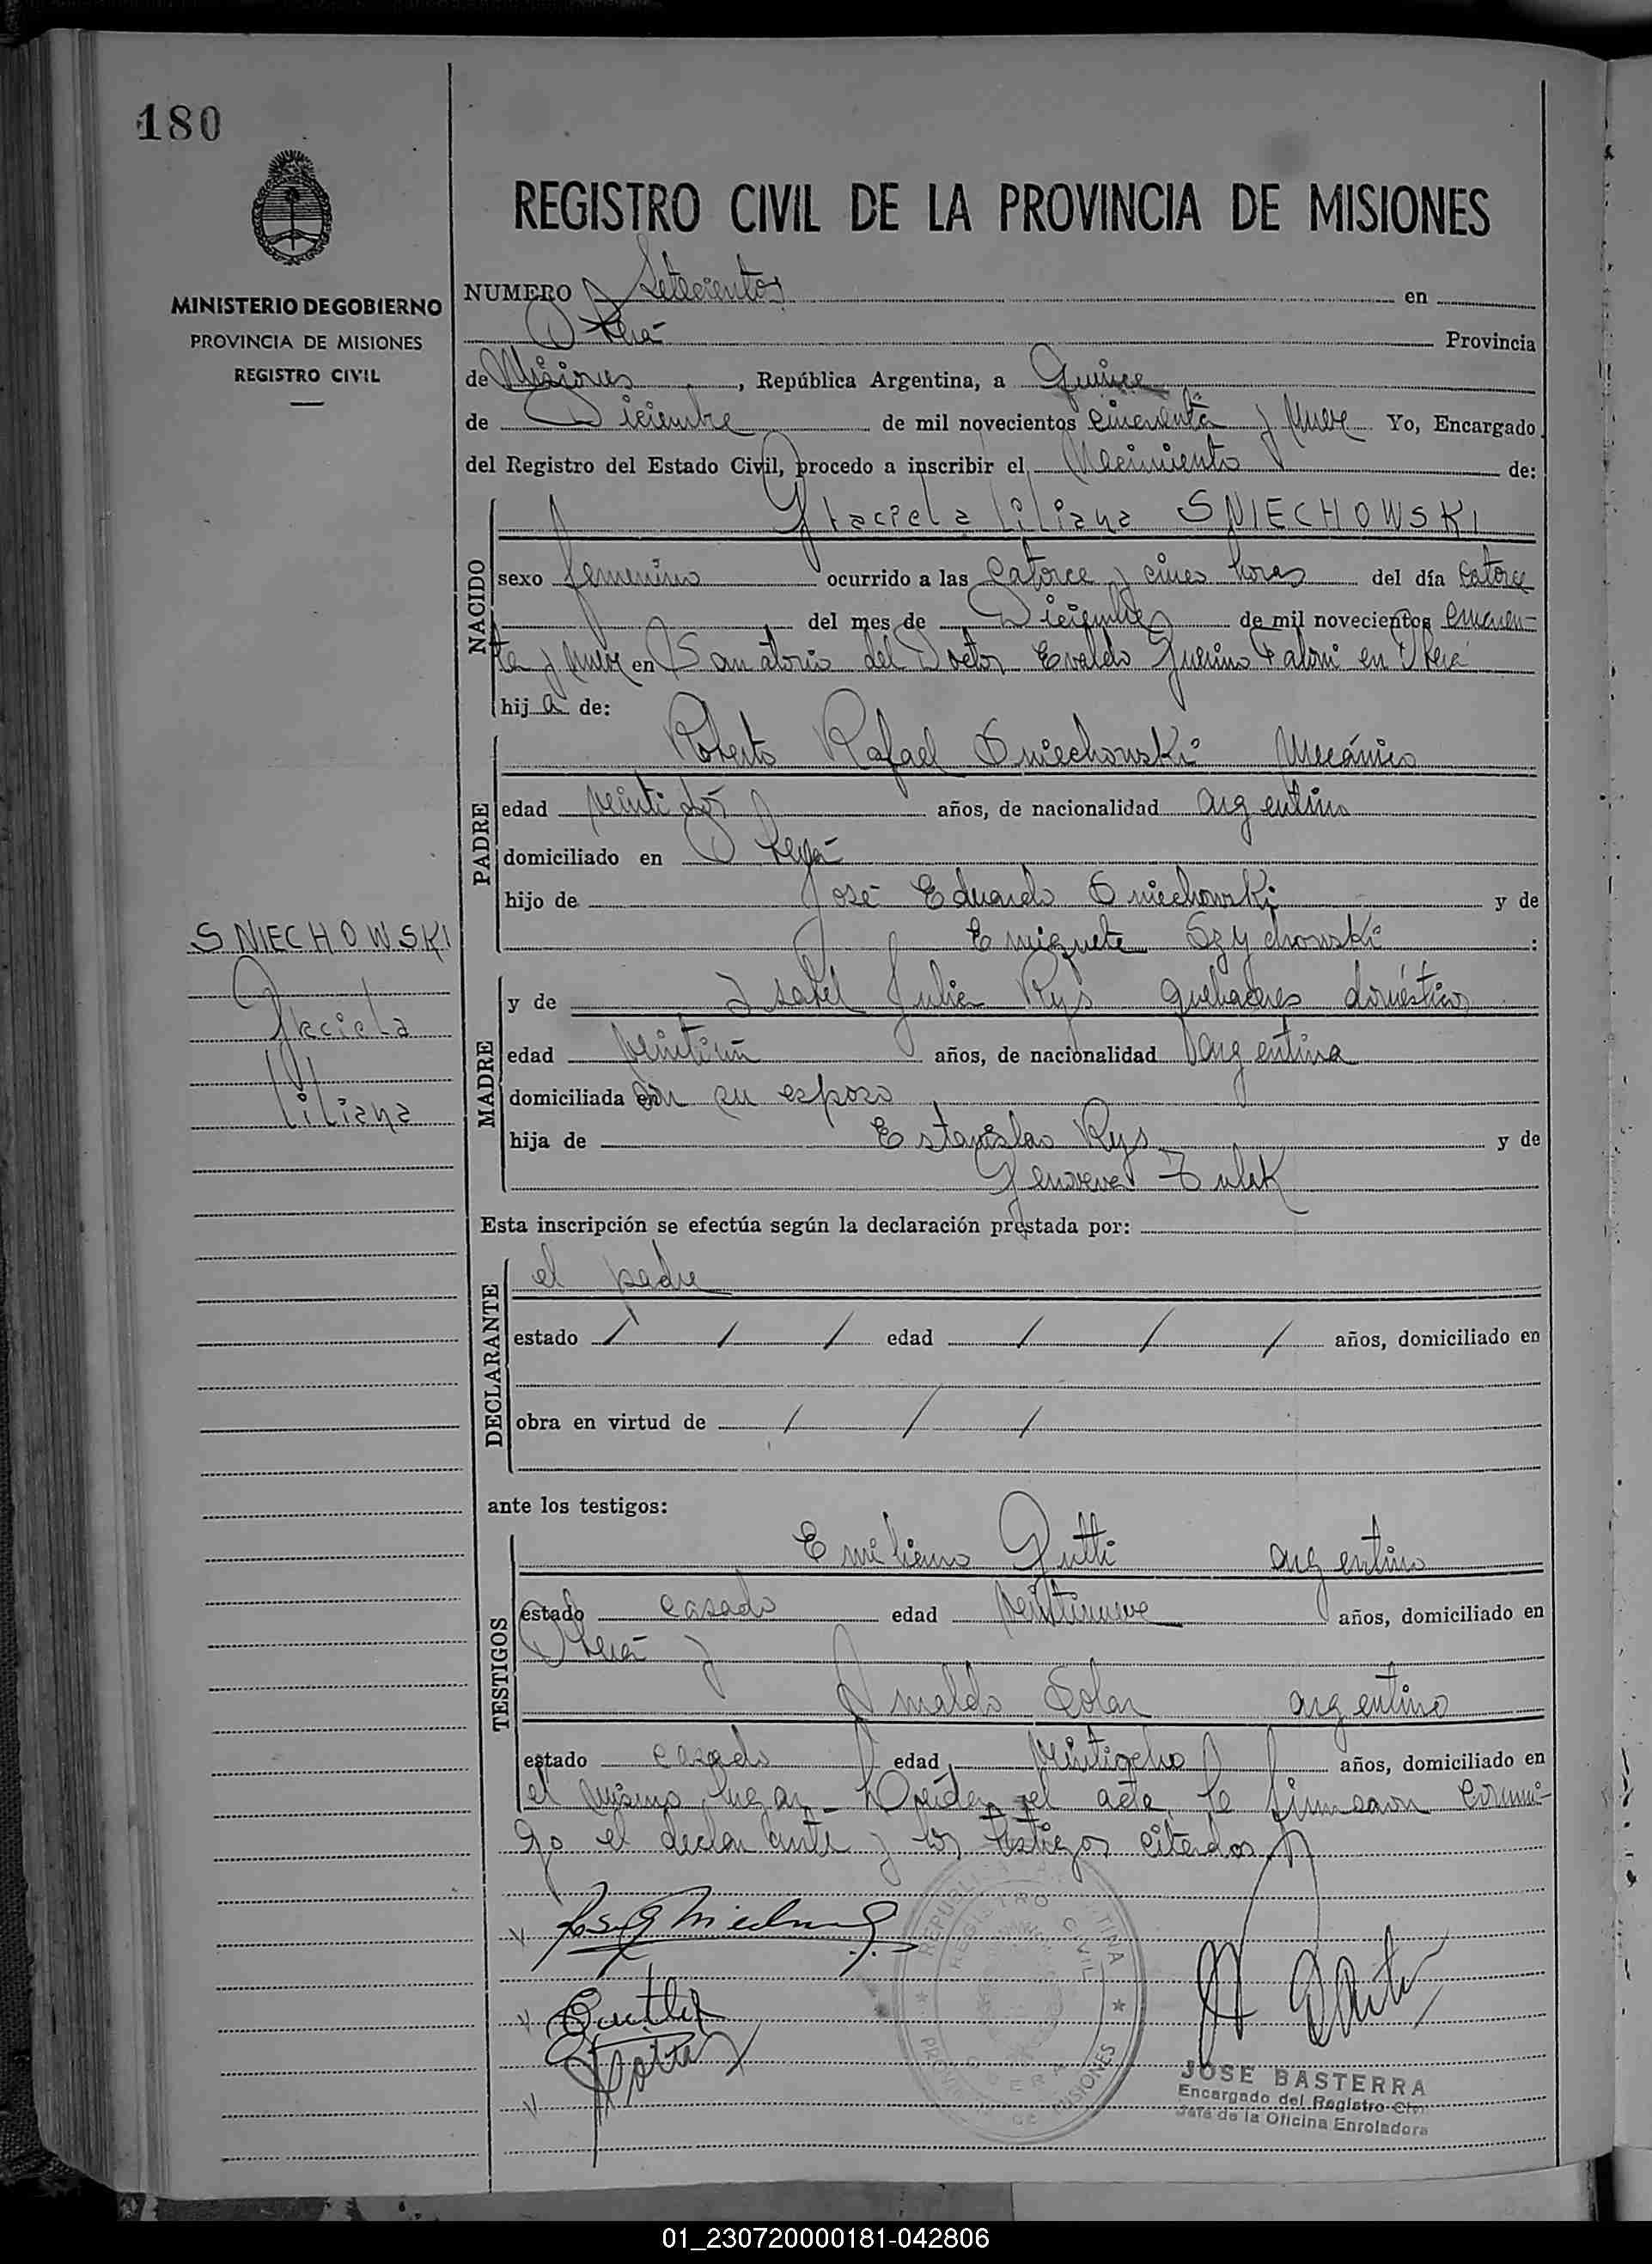 180
REGISTRO CIVIL DE LA PROVINCIA DE MISIONES
MINISTERIO DE GOBIERNO
PROVINCIA DE MISIONES
REGISTRO CIVIL
NUMERO Setecientos en
Oberá Provincia
de Misiones, República Argentina, a Quince
de Diciembre de mil novecientos cincuenta y nueve Yo, Encargado
del Registro del Estado Civil, procedo a inscribir el Nacimiento de:
NACIDO
Graciela Liliana SNIECHOWSKI
sexo femenino ocurrido a las catorce y cinco horas del día catorce
del mes de Diciembre de mil novecientos cincuen-
ta y nueve en Sanatorio del Doctor Evaldo Guerino en Oberá
hija de:
PADRE
Roberto Rafael Sniechowski Mecánico
edad veintidós años, de nacionalidad argentino
domiciliado en Oberá
hijo de José Eduardo Sniechowski y de
Szychowski :
MADRE
y de Isabel Julia Rys quehaceres domésticos
edad veintiún años, de nacionalidad argentina
domiciliada con su esposo
hija de Estanislao Rys y de
Genoveva Tulik
SNIECHOWSKI
Graciela
Liliana
Esta inscripción se efectúa según la declaración prestada por:
DECLARANTE
el padre
estado / / / edad / / / años, domiciliado en
obra en virtud de / / /
ante los testigos:
TESTIGOS
Emiliano argentino
estado casado edad veintinueve años, domiciliado en
Oberá y
Arnaldo argentino
estado casado edad veintiocho años, domiciliado en
el mismo lugar. Leída el acta, la firmaron conmi-
go el declarante y los testigos citados
REPUBLICA ARGENTINA
REGISTRO CIVIL
OBERA
PROVINCIA DE MISIONES
JOSE BASTERRA
Encargado del Registro Civil
Jefe de la Oficina Enroladora
01_230720000181-042806